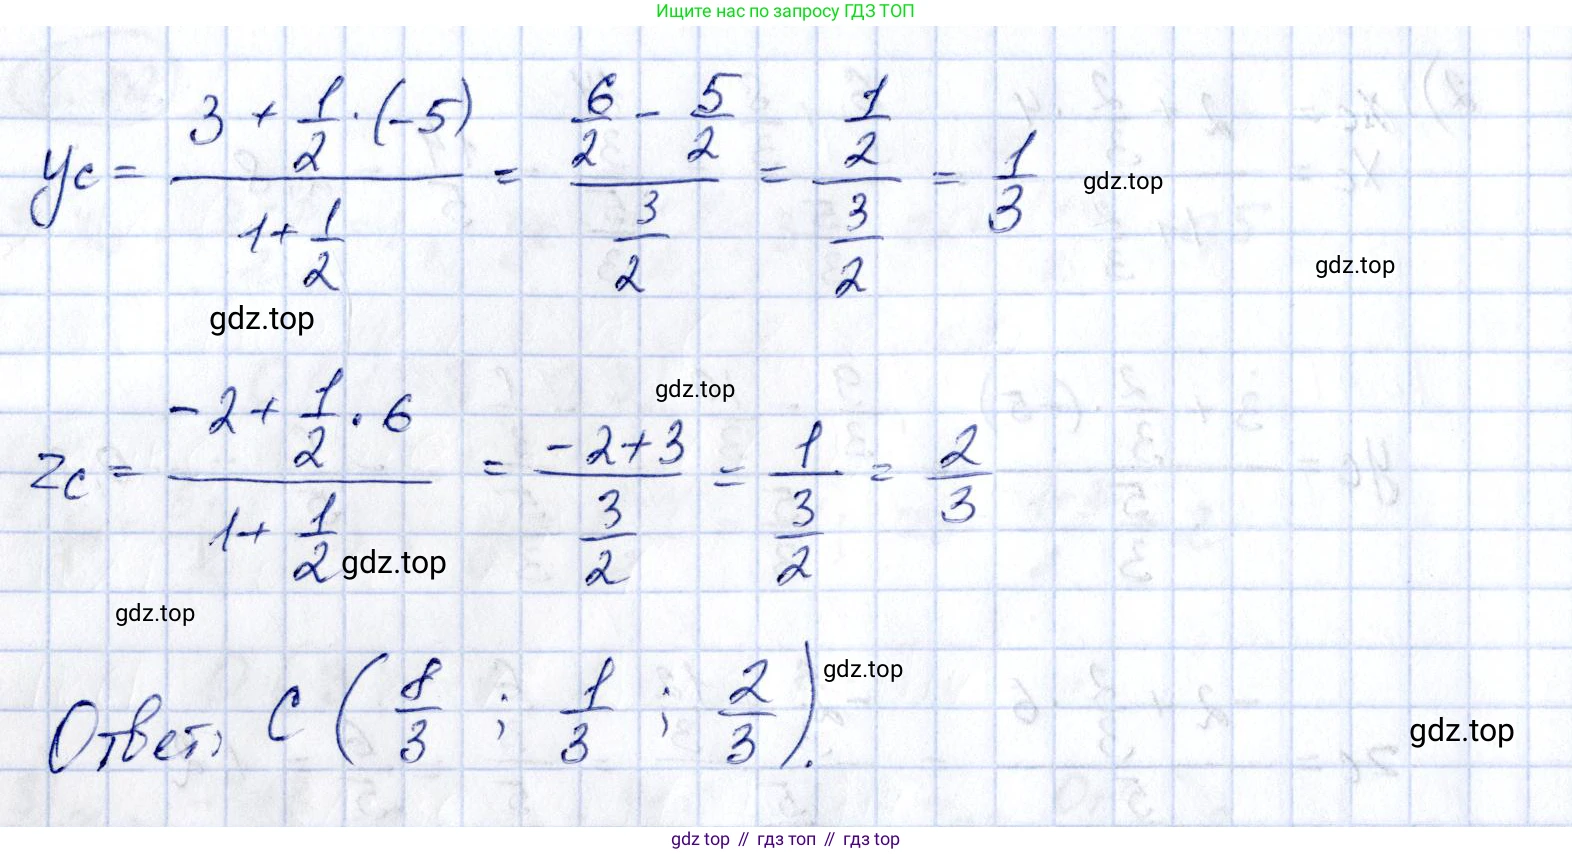 Ищите нас по запросу ГДЗ ТОП
yc = (3 + 1/2 · (-5)) / (1 + 1/2) = (6/2 - 5/2) / (3/2) = (1/2) / (3/2) = 1/3 gdz.top
gdz.top
gdz.top
gdz.top
zc = (-2 + 1/2 · 6) / (1 + 1/2) = (-2+3) / (3/2) = 1 / (3/2) = 2/3
gdz.top
gdz.top
Ответ: C (8/3 ; 1/3 ; 2/3). gdz.top
gdz.top
gdz top // гдз топ // гдз top